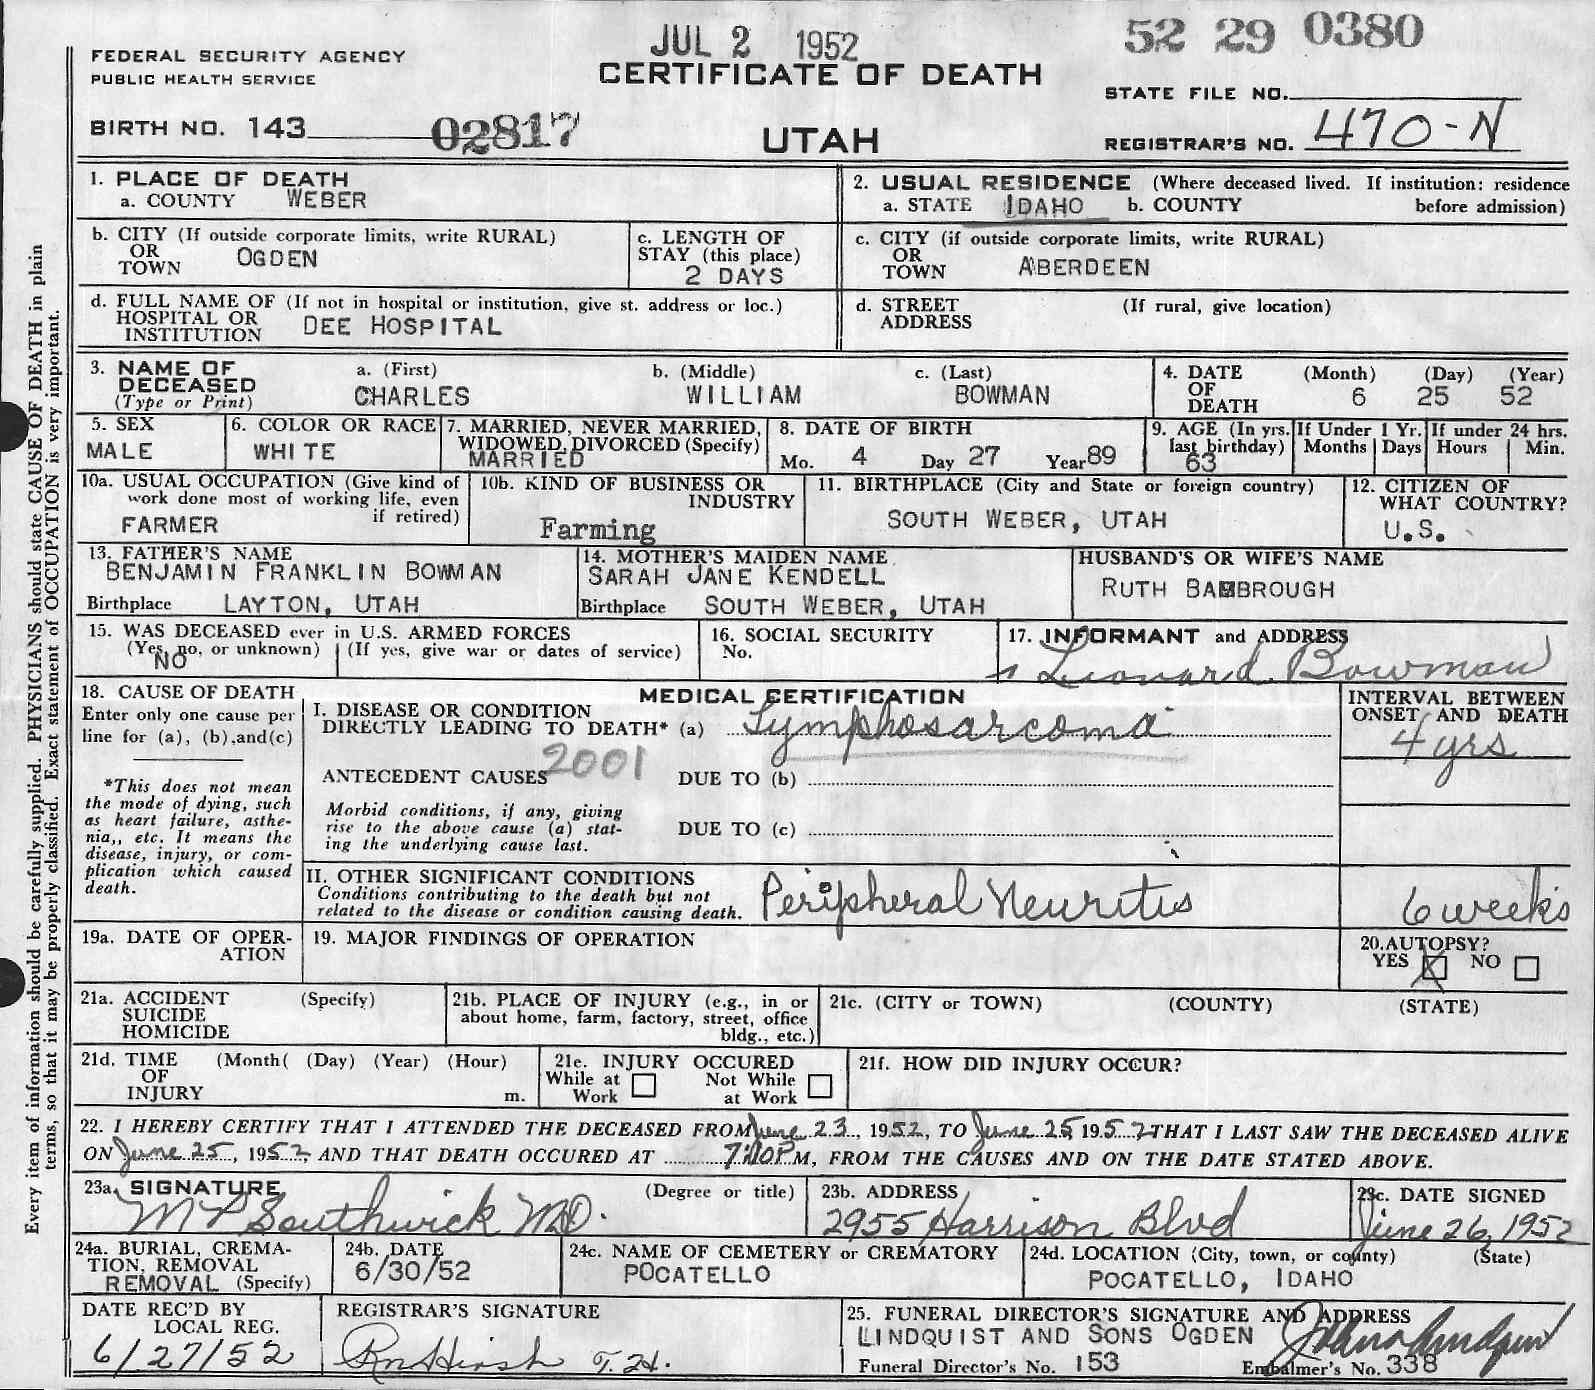 JUL 2 1952
52 29 0380
FEDERAL SECURITY AGENCY
PUBLIC HEALTH SERVICE
CERTIFICATE OF DEATH
STATE FILE NO.
BIRTH NO. 143 02817
UTAH
REGISTRAR'S NO. 470-N
Every item of information should be carefully supplied. PHYSICIANS should state CAUSE OF DEATH in plain
terms, so that it may be properly classified. Exact statement of OCCUPATION is very important.
1. PLACE OF DEATH
a. COUNTY WEBER
2. USUAL RESIDENCE (Where deceased lived. If institution: residence
a. STATE IDAHO b. COUNTY before admission)
b. CITY (If outside corporate limits, write RURAL)
OR
TOWN OGDEN
c. LENGTH OF
STAY (this place)
2 DAYS
c. CITY (if outside corporate limits, write RURAL)
OR
TOWN ABERDEEN
d. FULL NAME OF (If not in hospital or institution, give st. address or loc.)
HOSPITAL OR
INSTITUTION DEE HOSPITAL
d. STREET (If rural, give location)
ADDRESS
3. NAME OF
DECEASED
(Type or Print)
a. (First)
CHARLES
b. (Middle)
WILLIAM
c. (Last)
BOWMAN
4. DATE
OF
DEATH
(Month) (Day) (Year)
6 25 52
5. SEX
MALE
6. COLOR OR RACE
WHITE
7. MARRIED, NEVER MARRIED,
WIDOWED, DIVORCED (Specify)
MARRIED
8. DATE OF BIRTH
Mo. 4 Day 27 Year 89
9. AGE (In yrs.
last birthday)
63
If Under 1 Yr.
Months Days
If under 24 hrs.
Hours Min.
10a. USUAL OCCUPATION (Give kind of
work done most of working life, even
if retired)
FARMER
10b. KIND OF BUSINESS OR
INDUSTRY
Farming
11. BIRTHPLACE (City and State or foreign country)
SOUTH WEBER, UTAH
12. CITIZEN OF
WHAT COUNTRY?
U.S.
13. FATHER'S NAME
BENJAMIN FRANKLIN BOWMAN
Birthplace LAYTON, UTAH
14. MOTHER'S MAIDEN NAME
SARAH JANE KENDELL
Birthplace SOUTH WEBER, UTAH
HUSBAND'S OR WIFE'S NAME
RUTH BAMBROUGH
15. WAS DECEASED ever in U.S. ARMED FORCES
(Yes, no, or unknown) (If yes, give war or dates of service)
NO
16. SOCIAL SECURITY
No.
17. INFORMANT and ADDRESS
Leonard Bowman
18. CAUSE OF DEATH
Enter only one cause per
line for (a), (b), and (c)
*This does not mean
the mode of dying, such
as heart failure, asthe-
nia,, etc. It means the
disease, injury, or com-
plication which caused
death.
MEDICAL CERTIFICATION
I. DISEASE OR CONDITION
DIRECTLY LEADING TO DEATH* (a) Lymphosarcoma
2001
ANTECEDENT CAUSES DUE TO (b)
Morbid conditions, if any, giving
rise to the above cause (a) stat-
ing the underlying cause last.
DUE TO (c)
INTERVAL BETWEEN
ONSET AND DEATH
4 yrs
II. OTHER SIGNIFICANT CONDITIONS
Conditions contributing to the death but not
related to the disease or condition causing death.
Peripheral Neuritis
6 weeks
19a. DATE OF OPER-
ATION
19. MAJOR FINDINGS OF OPERATION
20. AUTOPSY?
YES X NO
21a. ACCIDENT (Specify)
SUICIDE
HOMICIDE
21b. PLACE OF INJURY (e.g., in or
about home, farm, factory, street, office
bldg., etc.)
21c. (CITY or TOWN) (COUNTY) (STATE)
21d. TIME (Month( (Day) (Year) (Hour)
OF
INJURY m.
21e. INJURY OCCURED
While at Not While
Work at Work
21f. HOW DID INJURY OCCUR?
22. I HEREBY CERTIFY THAT I ATTENDED THE DECEASED FROM June 23, 1952, TO June 25, 1952 THAT I LAST SAW THE DECEASED ALIVE
ON June 25, 1952, AND THAT DEATH OCCURED AT 7:10 P M, FROM THE CAUSES AND ON THE DATE STATED ABOVE.
23a. SIGNATURE (Degree or title)
Southwick MD.
23b. ADDRESS
2955 Harrison Blvd
23c. DATE SIGNED
June 26, 1952
24a. BURIAL, CREMA-
TION, REMOVAL
REMOVAL (Specify)
24b. DATE
6/30/52
24c. NAME OF CEMETERY or CREMATORY
POCATELLO
24d. LOCATION (City, town, or county) (State)
POCATELLO, IDAHO
DATE REC'D BY
LOCAL REG.
6/27/52
REGISTRAR'S SIGNATURE
25. FUNERAL DIRECTOR'S SIGNATURE AND ADDRESS
LINDQUIST AND SONS OGDEN
Funeral Director's No. 153 Embalmer's No. 338